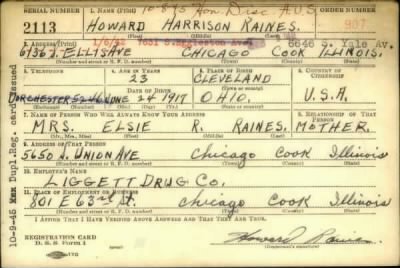 SERIAL NUMBER 1. NAME (Print) 10-8-45 Hon Disc A.U.S. ORDER NUMBER
2113 HOWARD HARRISON RAINES. 907
(First) (Middle) (Last)
2. ADDRESS (Print) 1/6/42 7631 S. Eggleston Ave. 6646 S. Yale Av.
6736 S. ELLIS AVE CHICAGO COOK ILLINOIS.
(Number and street or R. F. D. number) (Town) (County) (State)
3. TELEPHONE 4. AGE IN YEARS 5. PLACE OF BIRTH 6. COUNTRY OF CITIZENSHIP
23 CLEVELAND
DORCHESTER 5246 DATE OF BIRTH (Town or county)
JUNE 24 1917 OHIO. U.S.A.
(Exchange) (No.) (Mo.) (Day) (Yr.) (State or country)
7. NAME OF PERSON WHO WILL ALWAYS KNOW YOUR ADDRESS 8. RELATIONSHIP OF THAT PERSON
MRS. ELSIE R. RAINES. MOTHER.
(Mr., Mrs., Miss) (First) (Middle) (Last)
9. ADDRESS OF THAT PERSON
5650 S. UNION AVE. Chicago Cook Illinois
(Number and street or R. F. D. number) (Town) (County) (State)
10. EMPLOYER'S NAME
LIGGET DRUG CO.
11. PLACE OF EMPLOYMENT OR BUSINESS
801 E 63rd St. Chicago Cook Illinois
(Number and street or R. F. D. number) (Town) (County) (State)
I AFFIRM THAT I HAVE VERIFIED ABOVE ANSWERS AND THAT THEY ARE TRUE.
REGISTRATION CARD
D. S. S. Form 1
Howard Raines
(Registrant's signature)
10-9-45 Dupl. Reg. card issued